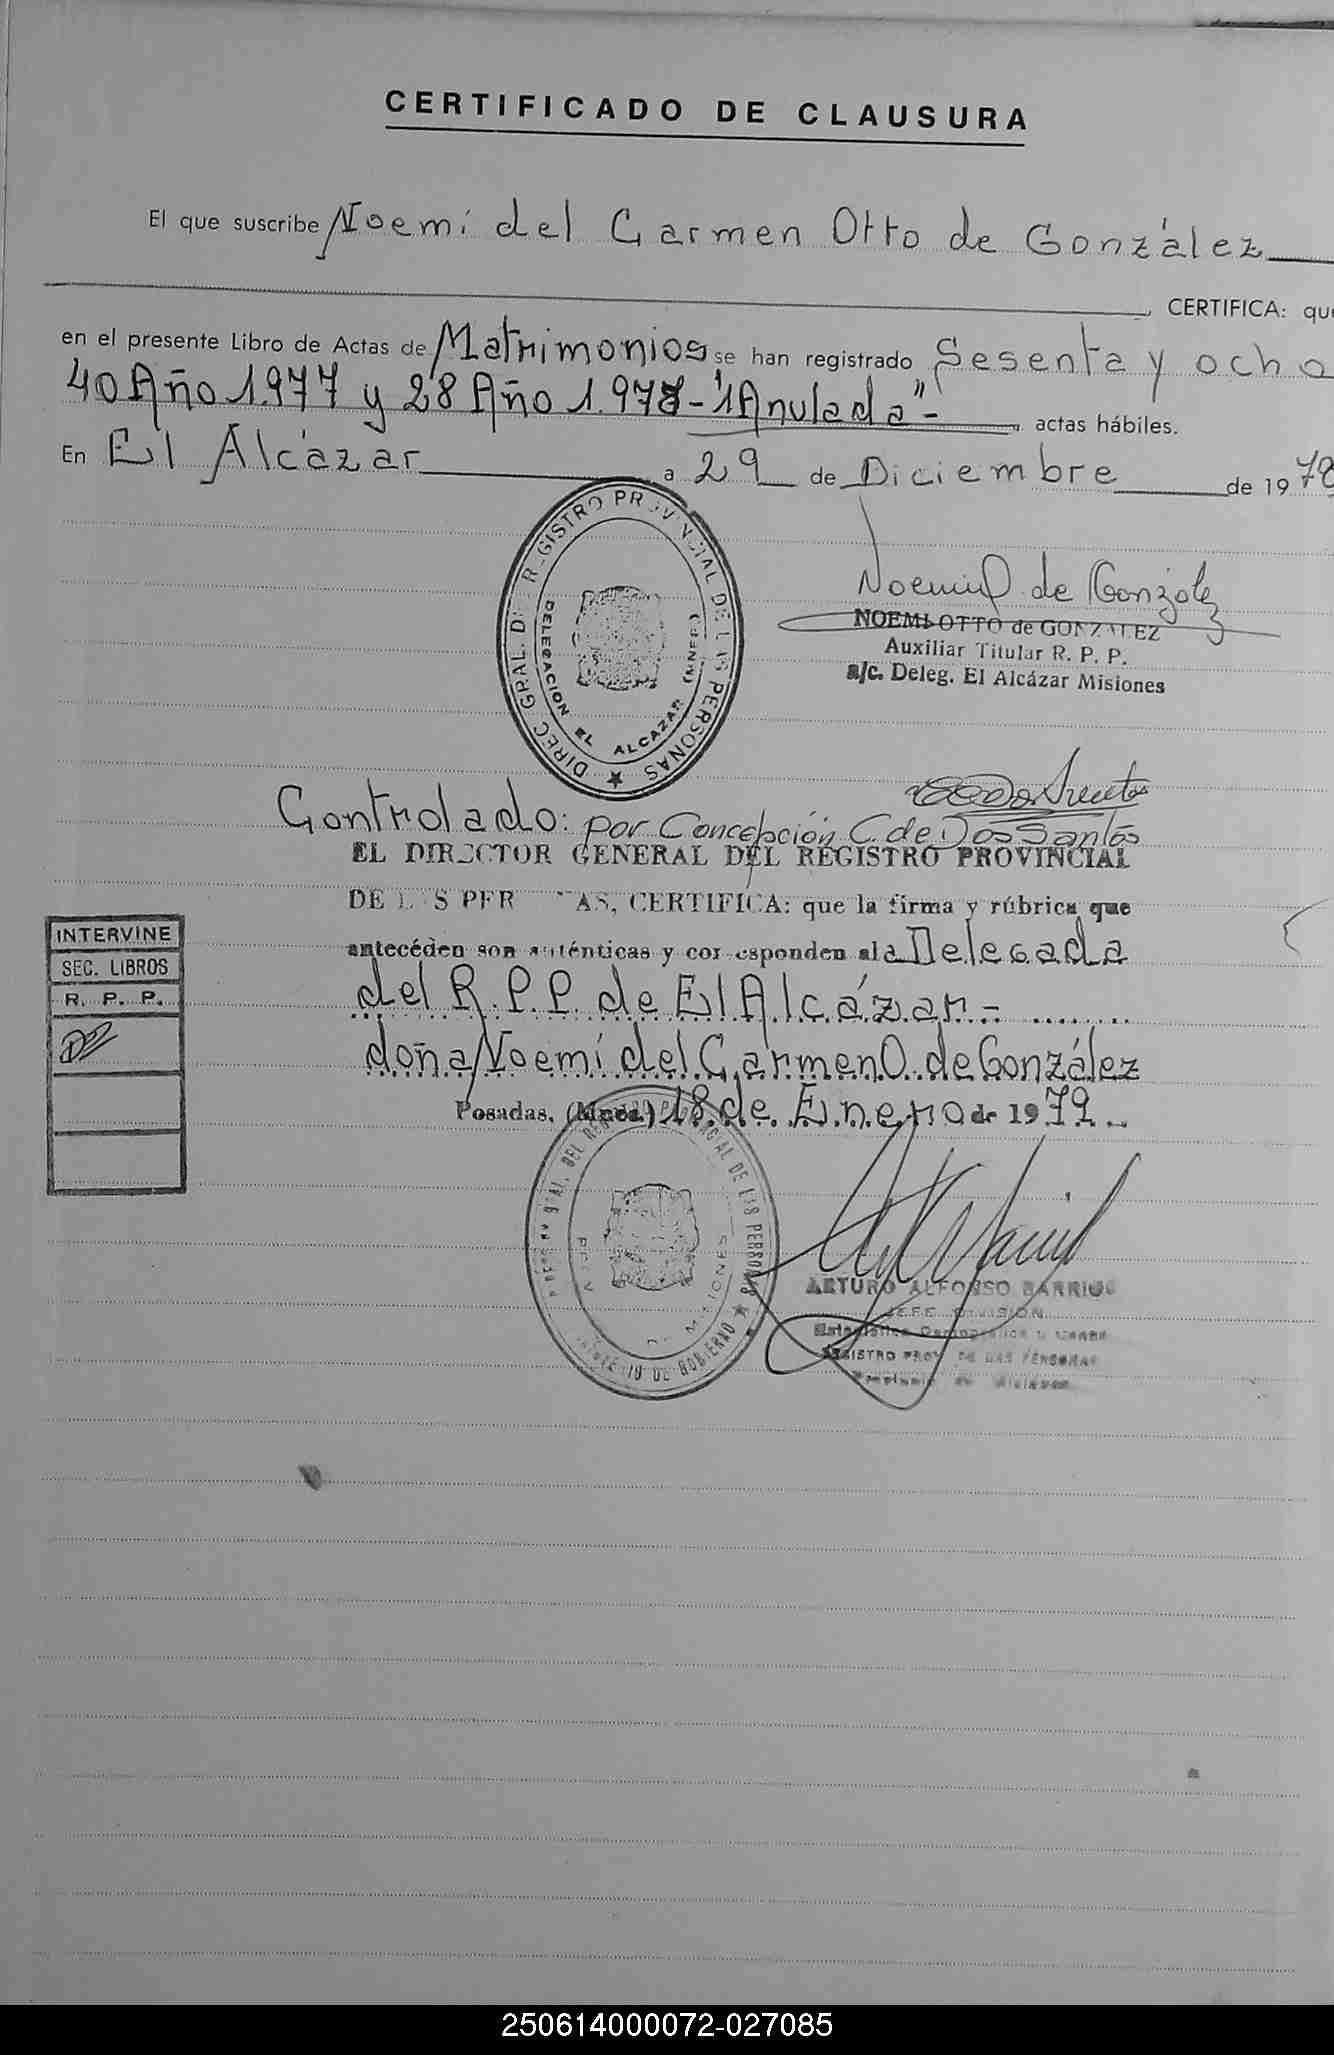 CERTIFICADO DE CLAUSURA
El que suscribe Noemí del Carmen Otto de González
CERTIFICA: que
en el presente Libro de Actas de Matrimonios se han registrado Sesenta y ocho
40 Año 1.977 y 28 Año 1.978 - "1 Anulada" - actas hábiles.
En El Alcázar a 29 de Diciembre de 1978
DIREC. GRAL. DEL REGISTRO PROVINCIAL DE LAS PERSONAS
DELEGACION EL ALCAZAR (MNES.)
Noemi O de González
NOEMI OTTO de GONZALEZ
Auxiliar Titular R. P. P.
a/c. Deleg. El Alcázar Misiones
Controlado: por Concepción C. de Dos Santos
EL DIRECTOR GENERAL DEL REGISTRO PROVINCIAL
DE LAS PERSONAS, CERTIFICA: que la firma y rúbrica que
antecéden son auténticas y corresponden al a Delegada
del R.P.P. de El Alcázar -
doña Noemí del Carmen O. de González
Posadas, (Mnes.) 18 de Enero de 1979
INTERVINE
SEC. LIBROS
R. P. P.
GRAL. DEL REGISTRO PROVINCIAL DE LAS PERSONAS
PROV. DE MISIONES
MINISTERIO DE GOBIERNO
ARTURO ALFONSO BARRIOS
JEFE DIVISION
REGISTRO PROV. DE LAS PERSONAS
250614000072-027085